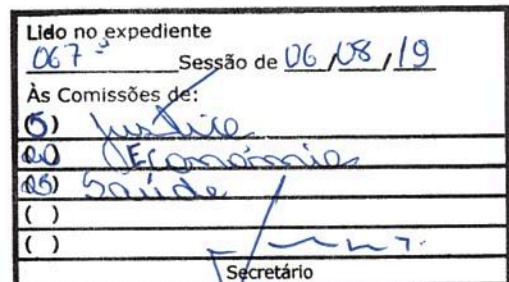 Lido no expediente
067ª Sessão de 06/08/19
Às Comissões de:
(5) Justiça
Economia
Saúde
( )
( )
Secretário